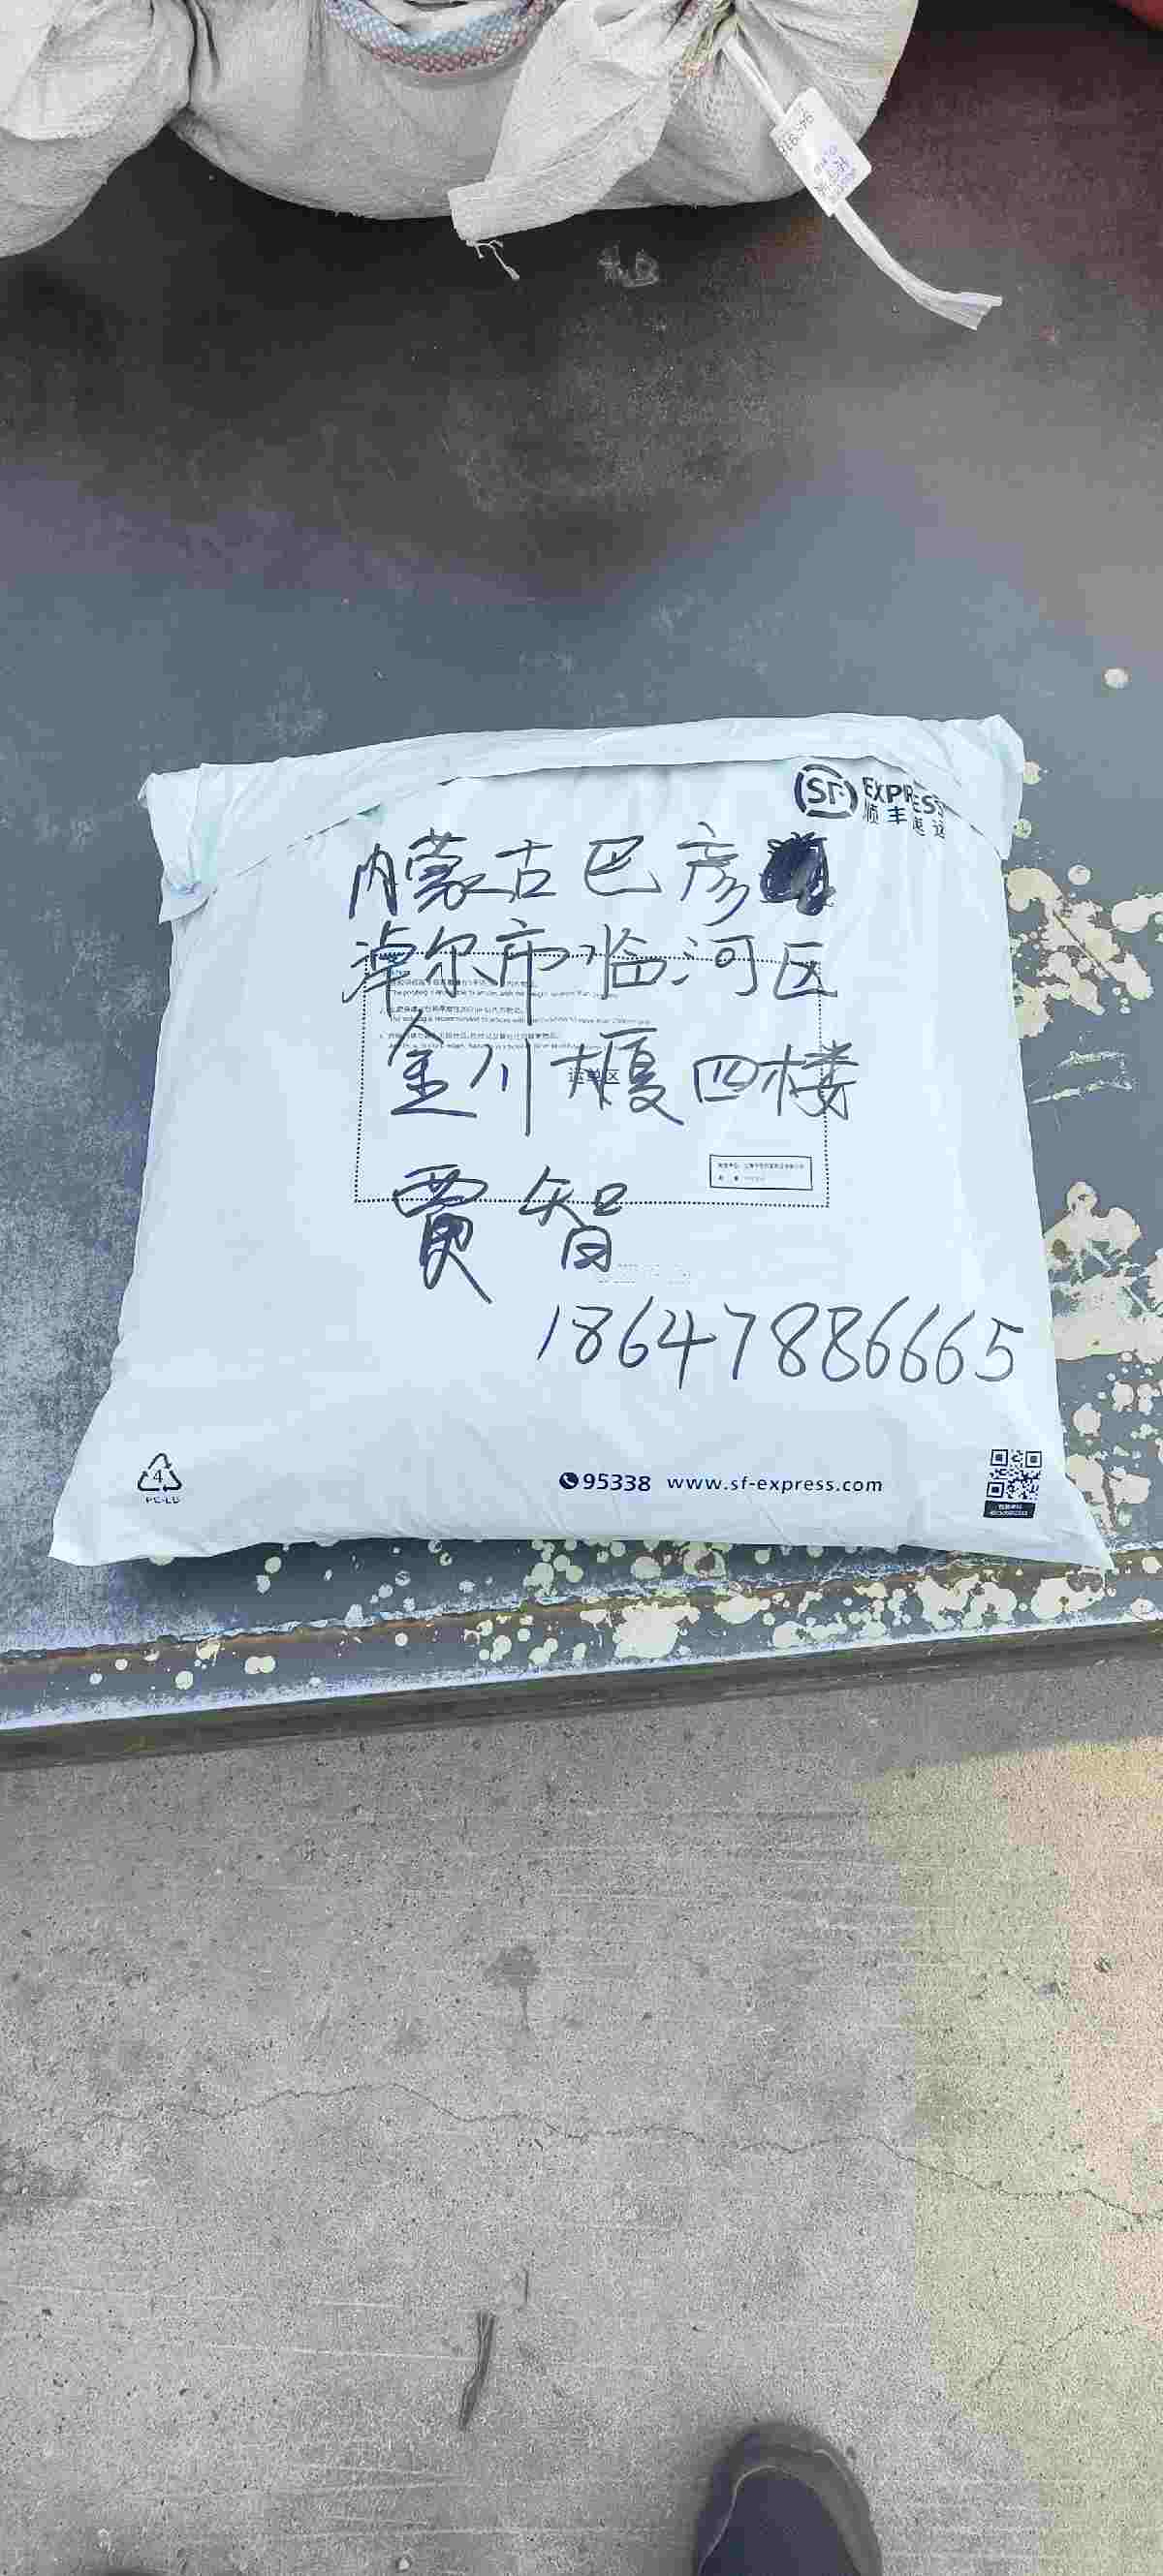 SF EXPRESS
顺丰速运
内蒙古巴彦
淖尔市临河区
金川大厦四楼
运单区
贾智
18647886665
4
PE-LD
95338 www.sf-express.com